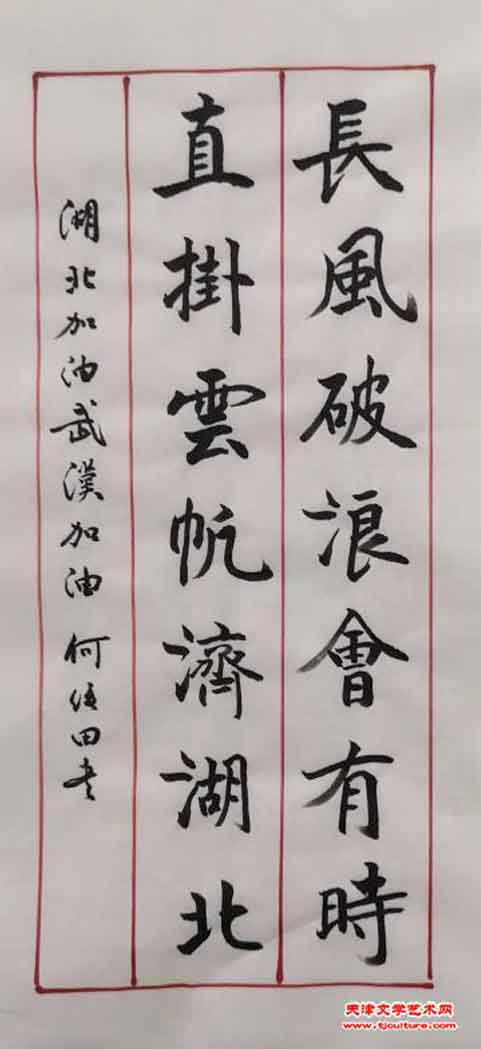 長風破浪會有時
直掛雲帆濟湖北
湖北加油武漢加油 何 田书
天津文学艺术网
www.tjculture.com